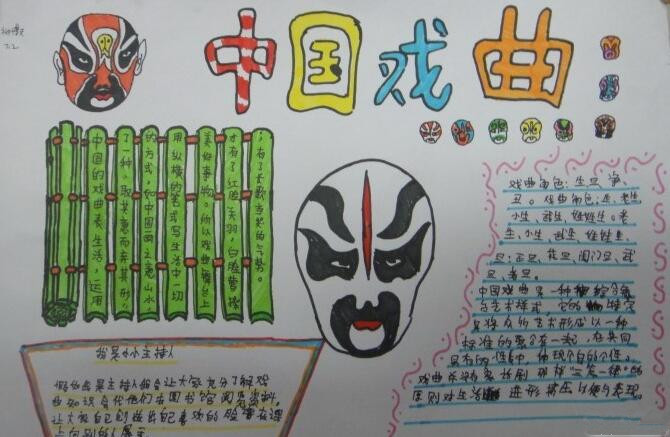 中国戏曲
7.2
中国的戏曲表生活，运用
了一种。取其意而弃其形，
的方式，如中国画之意山水，
用纵横的笔式写生活中一切
美好事物。所以戏曲舞台上
才有了红脸关羽，白脸曹操
；有了长歌当哭的气势。
戏曲角色：生旦净
丑。戏曲角色，生、老生
小生、武生、娃娃生。老
生、小生、武生、娃娃生
旦：正旦、花旦、闺门旦、武
旦、老旦。
中国戏曲是一种综合舞
台艺术样式，它的
是将众的艺术形成以一种
标准的聚合在一起，在共同
具有的性中体现个自的个性。
戏曲
原则对生活 进形
我是小小主持人
假如我是主持人我会让大家充分了解戏
曲知识会代他们去图书馆阅览资料，
让大家自己创做出自己喜欢的脸谱在课
上向别的人展示